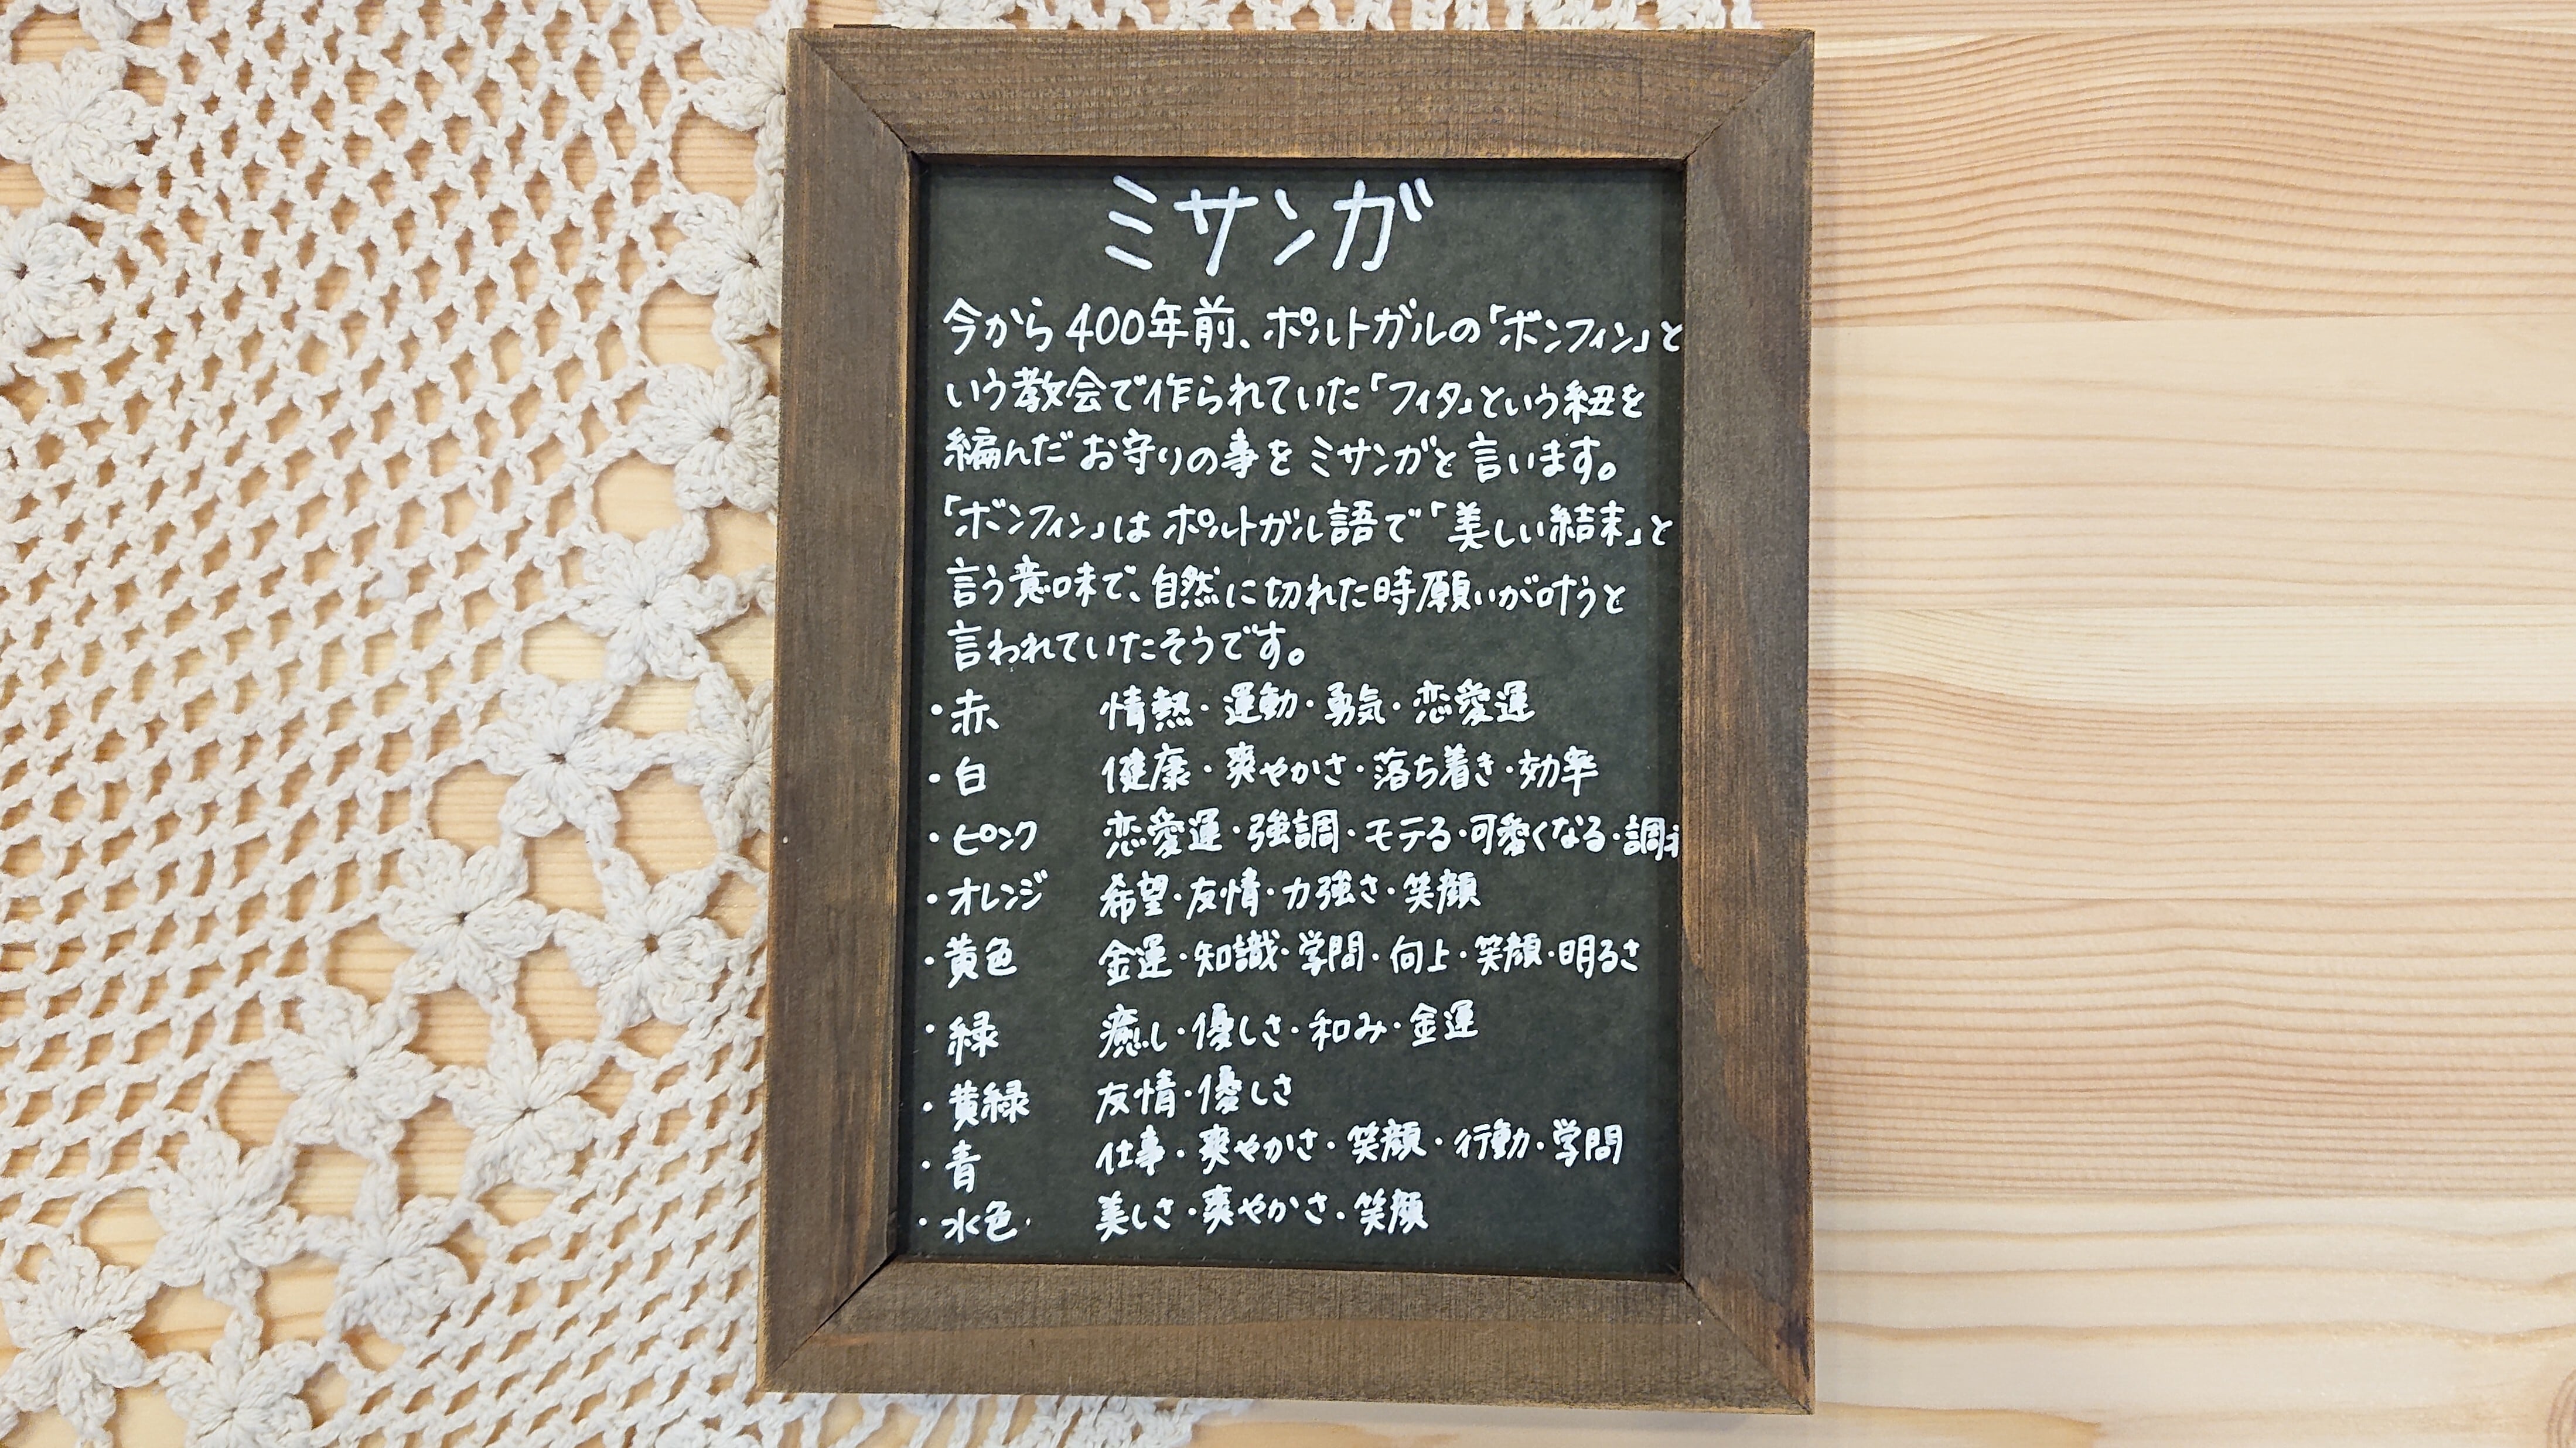 ミサンガ
今から400年前、ポルトガルの「ボンフィン」と
いう教会で作られていた「フィタ」という紐を
編んだお守りの事をミサンガと言います。
「ボンフィン」はポルトガル語で「美しい結末」と
言う意味で、自然に切れた時願いが叶うと
言われていたそうです。
・赤 情熱・運動・勇気・恋愛運
・白 健康・爽やかさ・落ち着き・効率
・ピンク 恋愛運・強調・モテる・可愛くなる・
・オレンジ 希望・友情・力強さ・笑顔
・黄色 金運・知識・学問・向上・笑顔・明るさ
・緑 癒し・優しさ・和み・金運
・黄緑 友情・優しさ
・青 仕事・爽やかさ・笑顔・行動・学問
・水色 美しさ・爽やかさ・笑顔